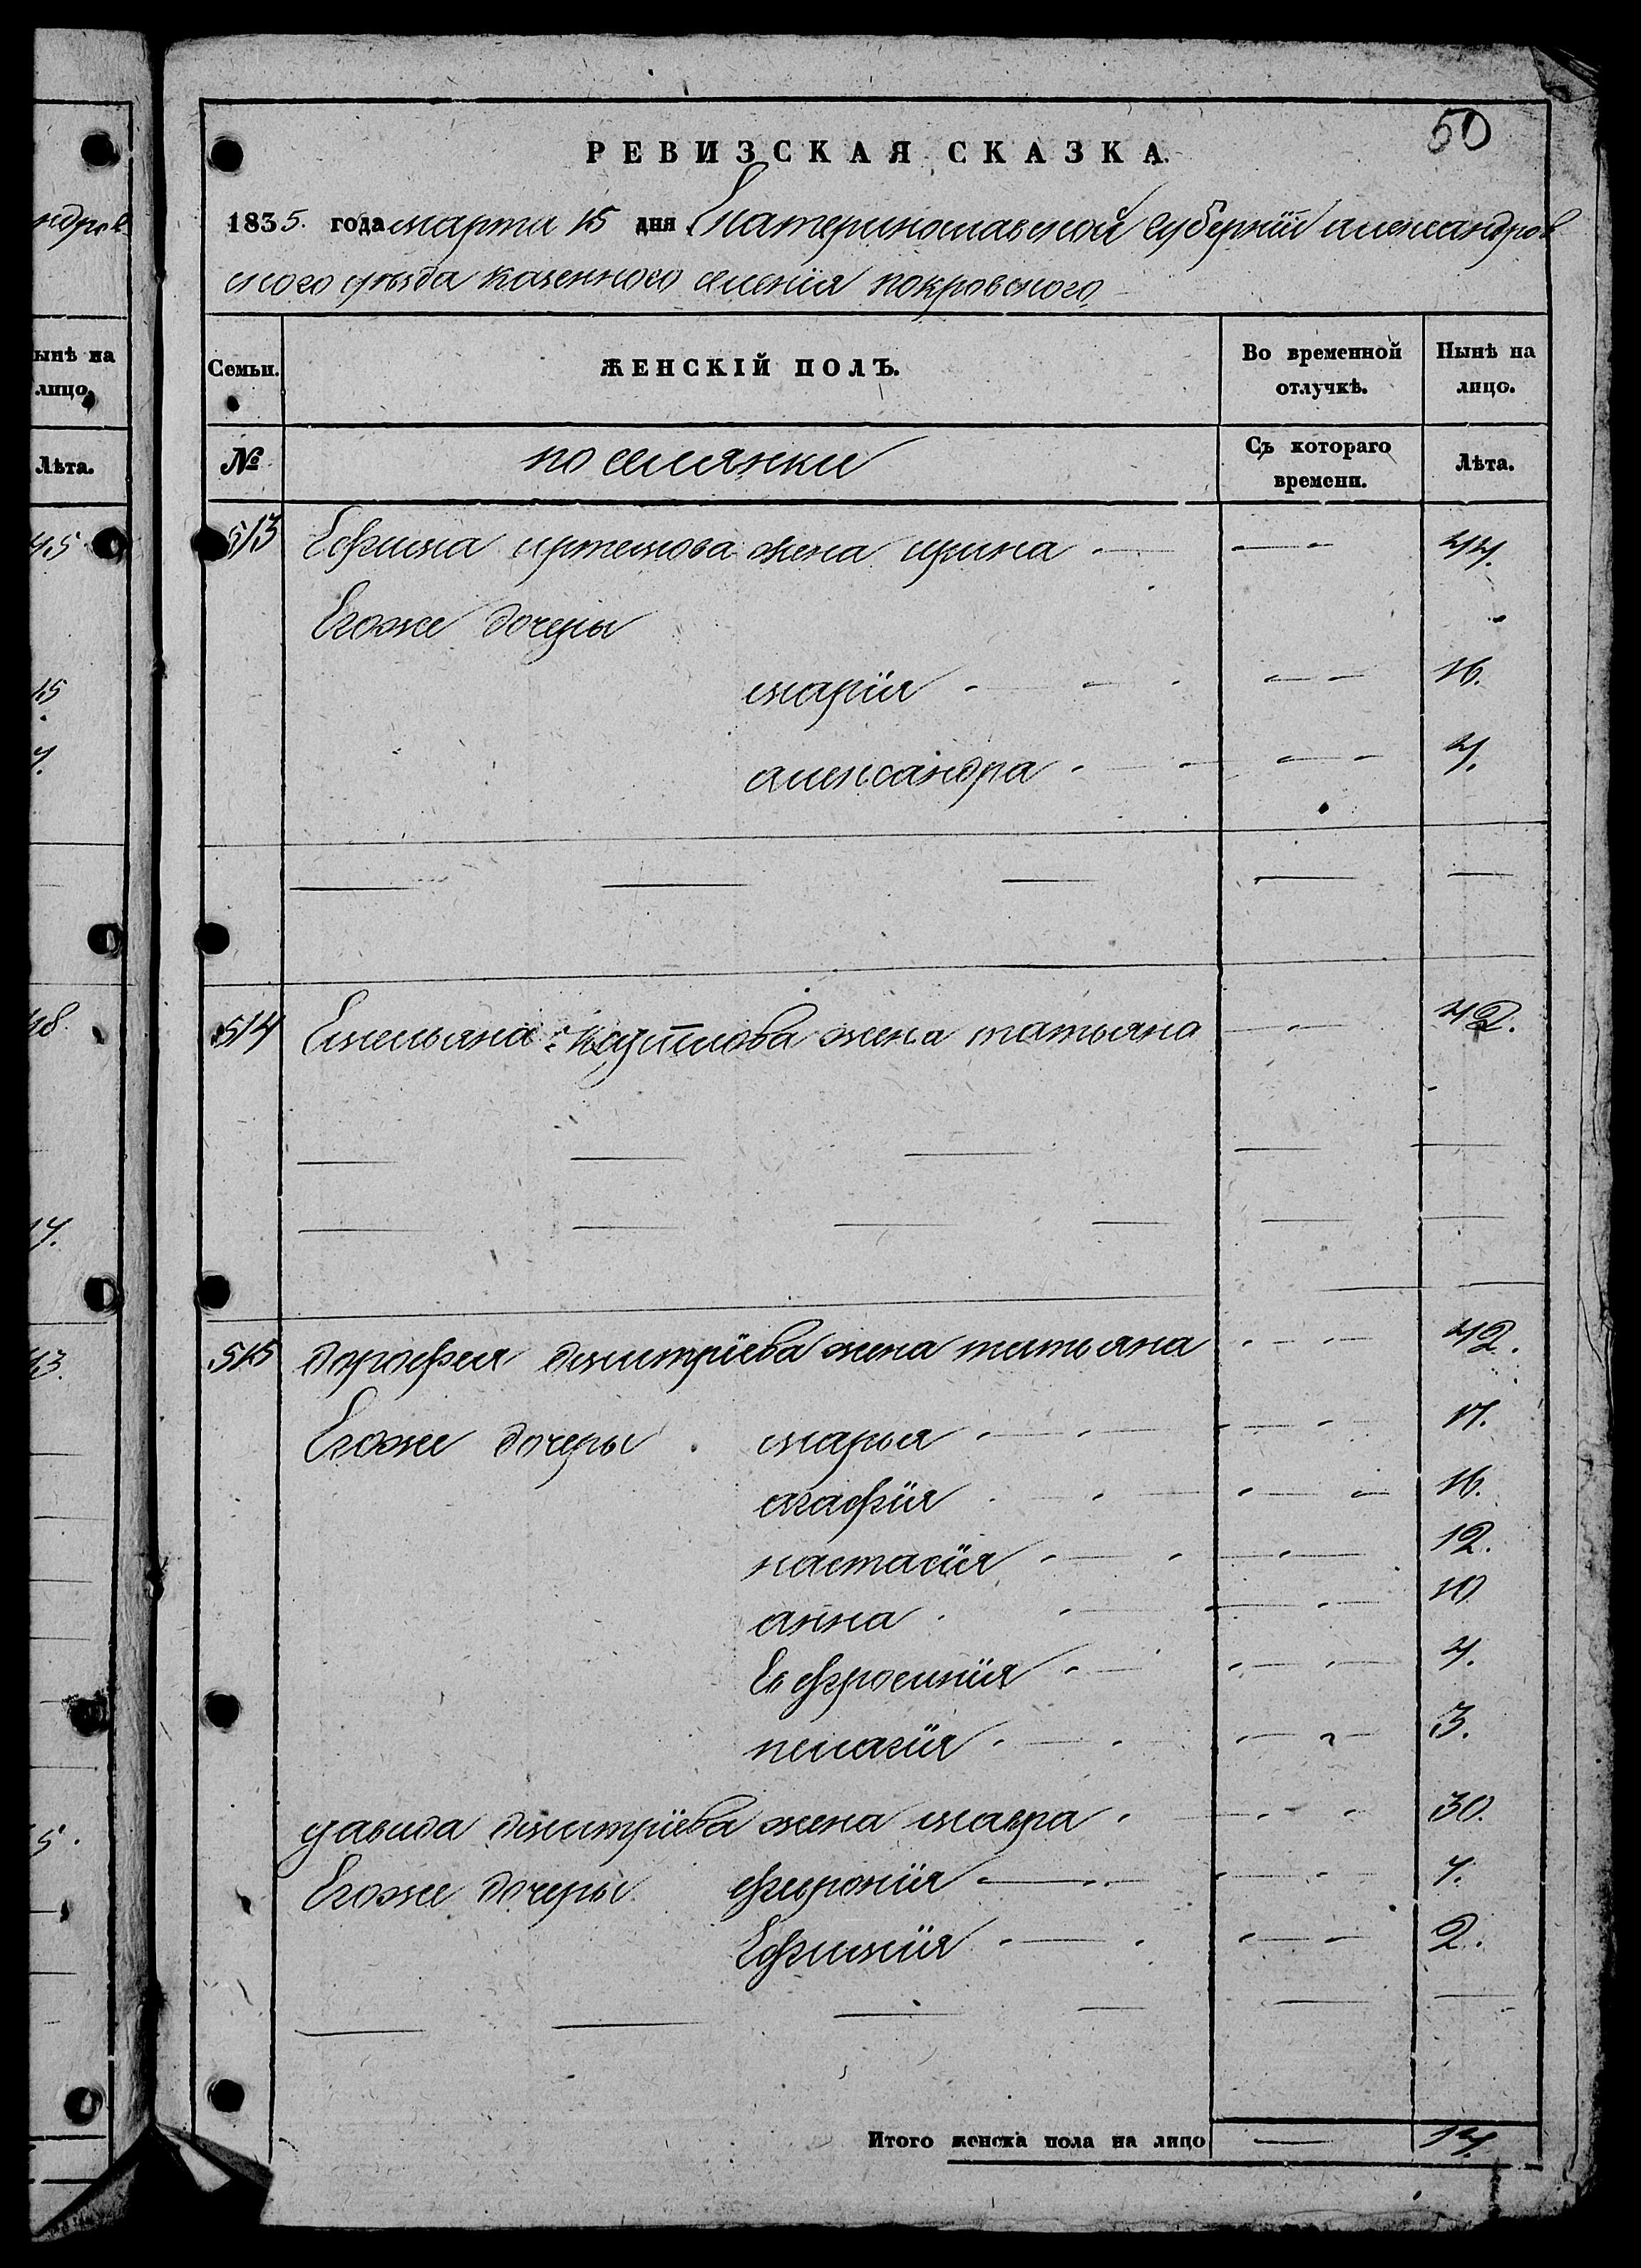 50
РЕВИЗСКАЯ СКАЗКА.
1835. года марта 15 дня Екатеринославской губернїи александров
ского уѣзда казенного селенїя покровского
Семьи. ЖЕНСКІЙ ПОЛЪ. Во временной отлучкѣ. Нынѣ на лицо.
№ поселянки Съ котораго времени. Лѣта.
513 Ефима артемова жена ирина 44.
Егоже дочери
марїя 16.
александра 4.
514 Емельяна жена татьяна 42.
515 дорофея дмитрїева жена татьяна 42.
Егоже дочеры марья 17.
агафїя 16.
настасїя 12.
анна 10
Евфросинїя 4.
пелагїя 3.
давида дмитрїева жена мавра 30.
Егоже дочеры фиронїя 4.
Ефимїя 2.
Итого женска пола на лицо 14.
ндров
ынѣ на
лицо
Лѣта.
45
15
4.
48
14.
43.
5.